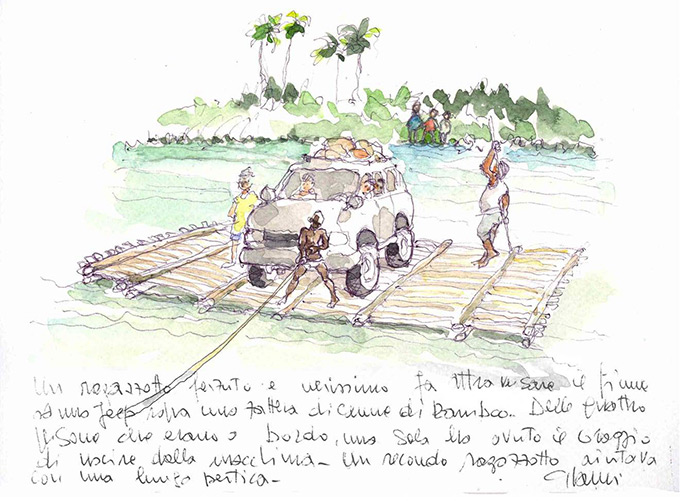 Un ragazzotto forzuto e nerissimo fa attraversare il fiume
ad una Jeep sopra una zattera di canne di Bamboo.. Delle quattro
persone che erano a bordo, una sola ha avuto il coraggio
di uscire dalla macchina - Un secondo ragazzotto aiutava
con una lunga pertica -